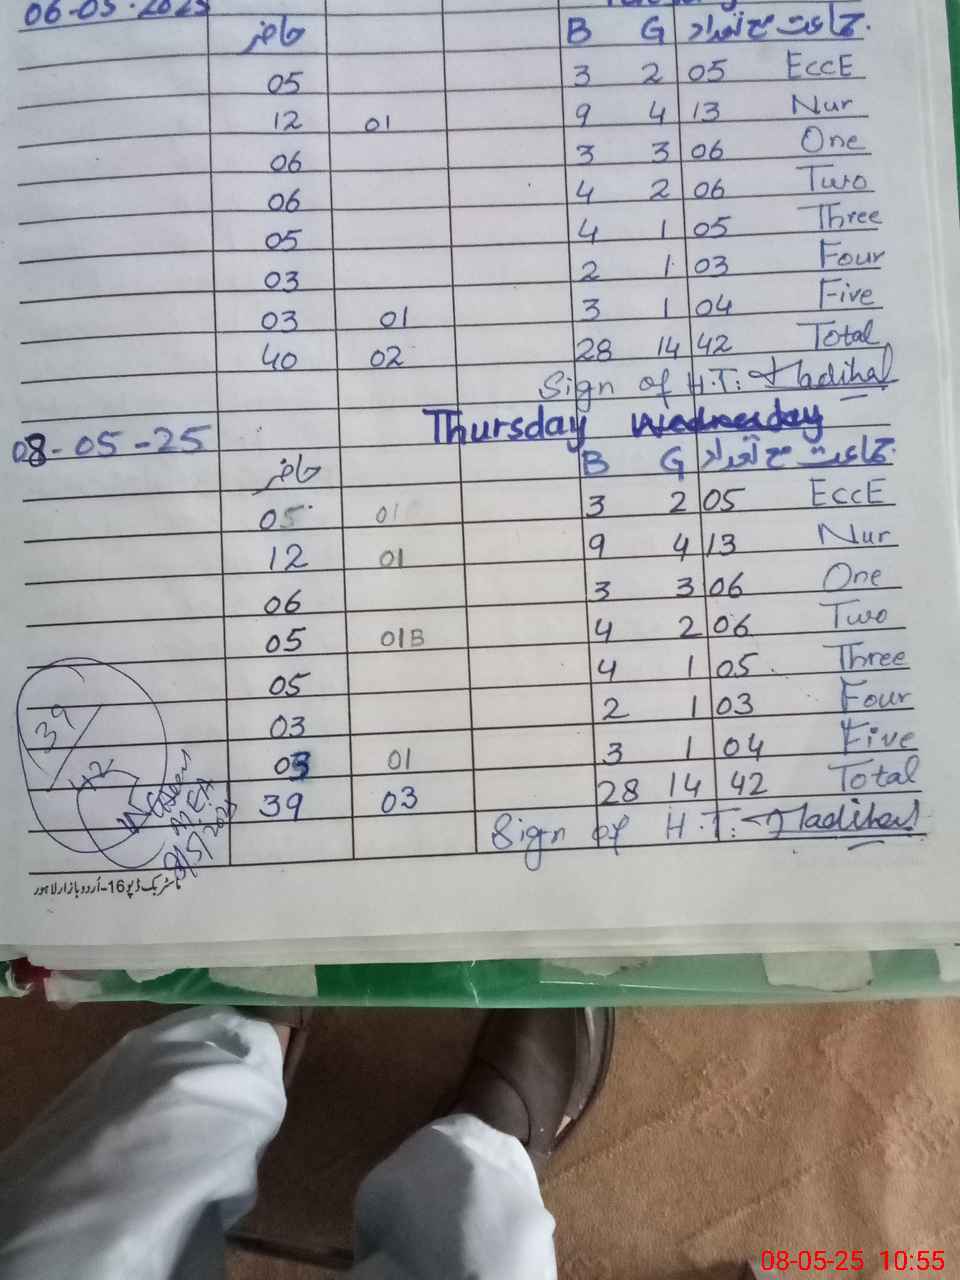 06-05-2025
حاضر B G جماعت مع تعداد
05 3 2 05 EccE
12 01 9 4 13 Nur
06 3 3 06 One
06 4 2 06 Two
05 4 1 05 Three
03 2 1 03 Four
03 01 3 1 04 Five
40 02 28 14 42 Total
Sign of H.T:
08-05-25 Thursday Wednesday
حاضر B G جماعت مع تعداد
05 01 3 2 05 EccE
12 01 9 4 13 Nur
06 3 3 06 One
05 01B 4 2 06 Two
05 4 1 05 Three
03 2 1 03 Four
03 01 3 1 04 Five
39 03 28 14 42 Total
Sign of H.T:
39/42
8/5/2025
بک ڈپو 16-اُردو بازار لاہور
08-05-25 10:55